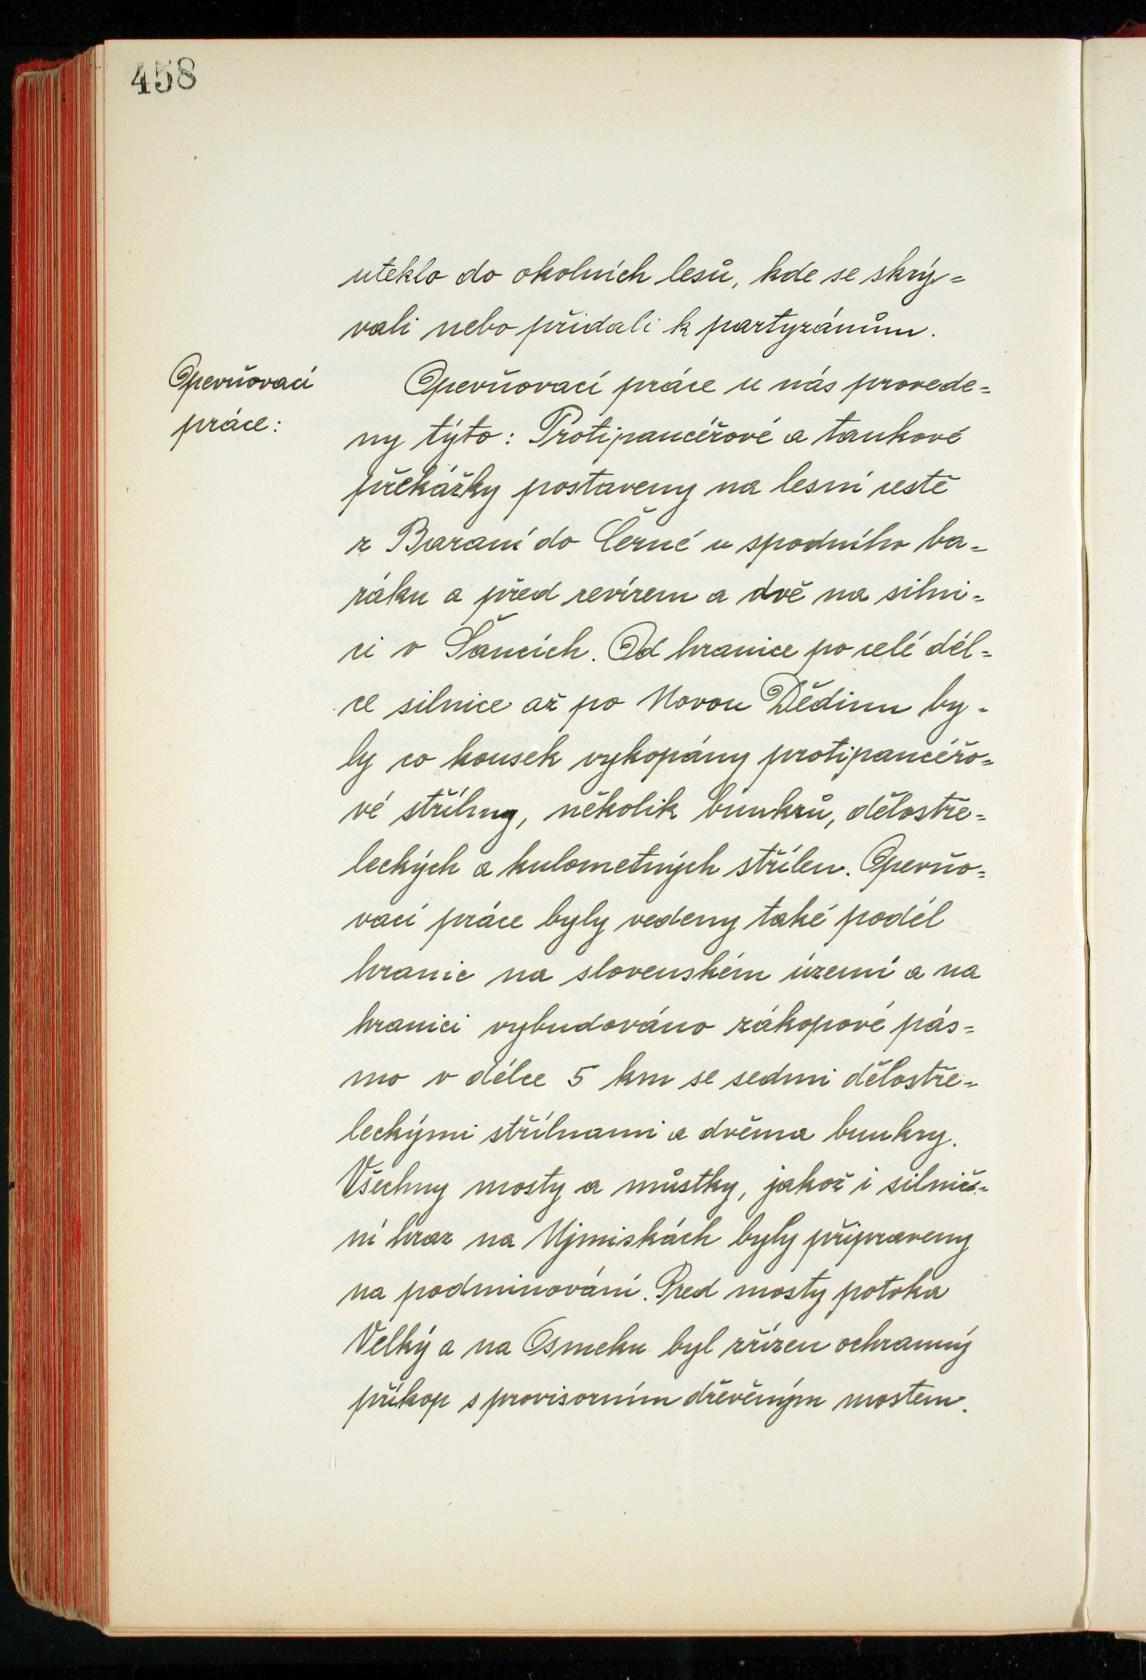 458
uteklo do okolních lesů, kde se skrý=
vali nebo přidali k partyzánům.
Opevňovací
práce:
Opevňovací práce u nás provede=
ny tyto: Protipancéřové a tankové
překážky postaveny na lesní cestě
z Baraní do Černé u spodního ba=
ráku a před revírem a dvě na silni=
ci v Šancích. Od hranice po celé dél=
ce silnice až po Novou Dědinu by=
ly co kousek vykopány protipancéřo=
vé střílny, několik bunkrů, dělostře=
leckých a kulometných střílen. Opevňo=
vací práce byly vedeny také podél
hranic na slovenském území a na
hranici vybudováno zákopové pás=
mo v délce 5 km se sedmi dělostře=
leckými střílnami a dvěma bunkry.
Všechny mosty a můstky, jakož i silnič=
ní hraz na Ujmiskách byly připraveny
na podminování. Pred mosty potoka
Velký a na Osmeku byl zřízen ochranný
příkop s provisorním dřevěným mostem.